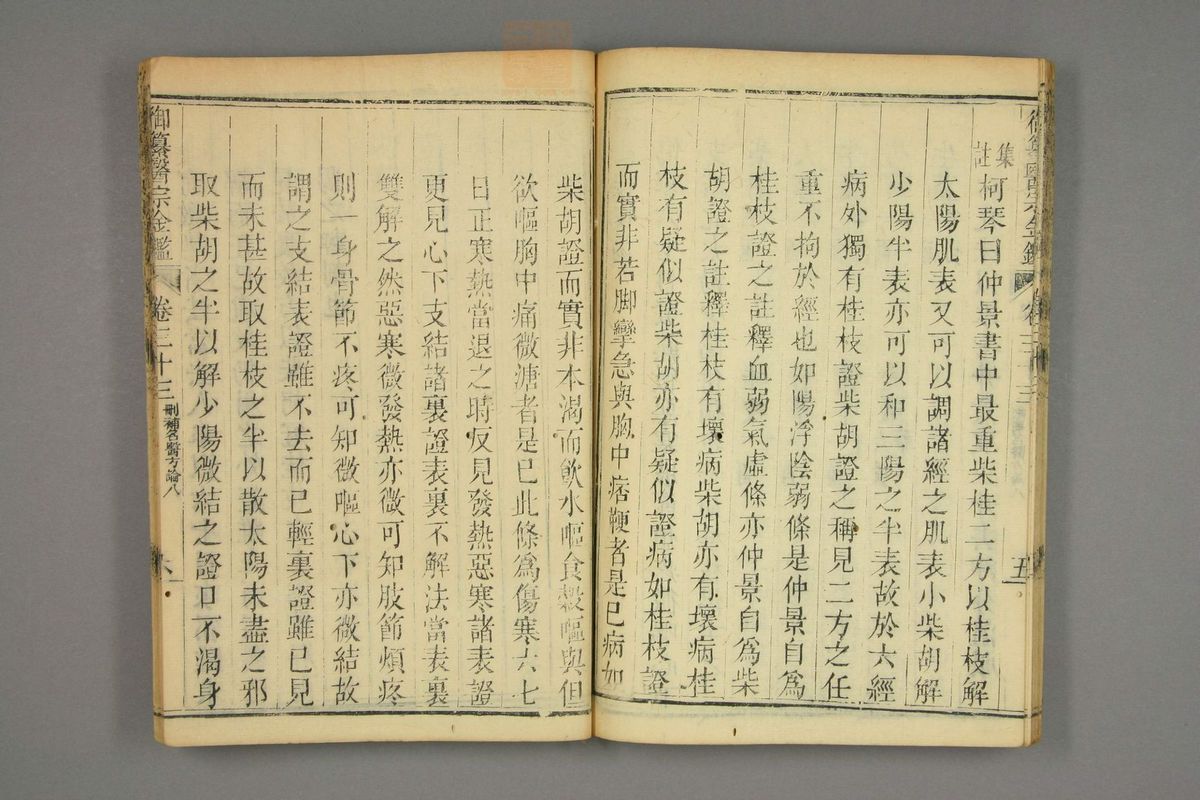 集註柯琴曰仲景書中最重柴桂二方以桂枝解
太陽肌表又可以調諸經之肌表小柴胡解
少陽半表亦可以和三陽之半表故於六經
病外獨有桂枝證柴胡證之稱見二方之任
重不拘於經也如陽浮陰弱條是仲景自爲
桂枝證之註釋血弱氣虛條亦仲景自爲柴
胡證之註釋桂枝有壞病柴胡亦有壞病桂
枝有疑似證柴胡亦有疑似證病如桂枝證
而實非若脚攣急與胸中痞鞕者是已病如
柴胡證而實非本渴而飮水嘔食穀嘔與但
欲嘔胸中痛微溏者是已此條爲傷寒六七
日正寒熱當退之時反見發熱惡寒諸表證
更見心下支結諸裏證表裏不解法當表裏
雙解之然惡寒微發熱亦微可知肢節煩疼
則一身骨節不疼可知微嘔心下亦微結故
謂之支結表證雖不去而已輕裏證雖已見
而未甚故取桂枝之半以散太陽未盡之邪
取柴胡之半以解少陽微結之證口不渴身
御纂醫宗金鑑 卷三十三 刪補名醫方論八